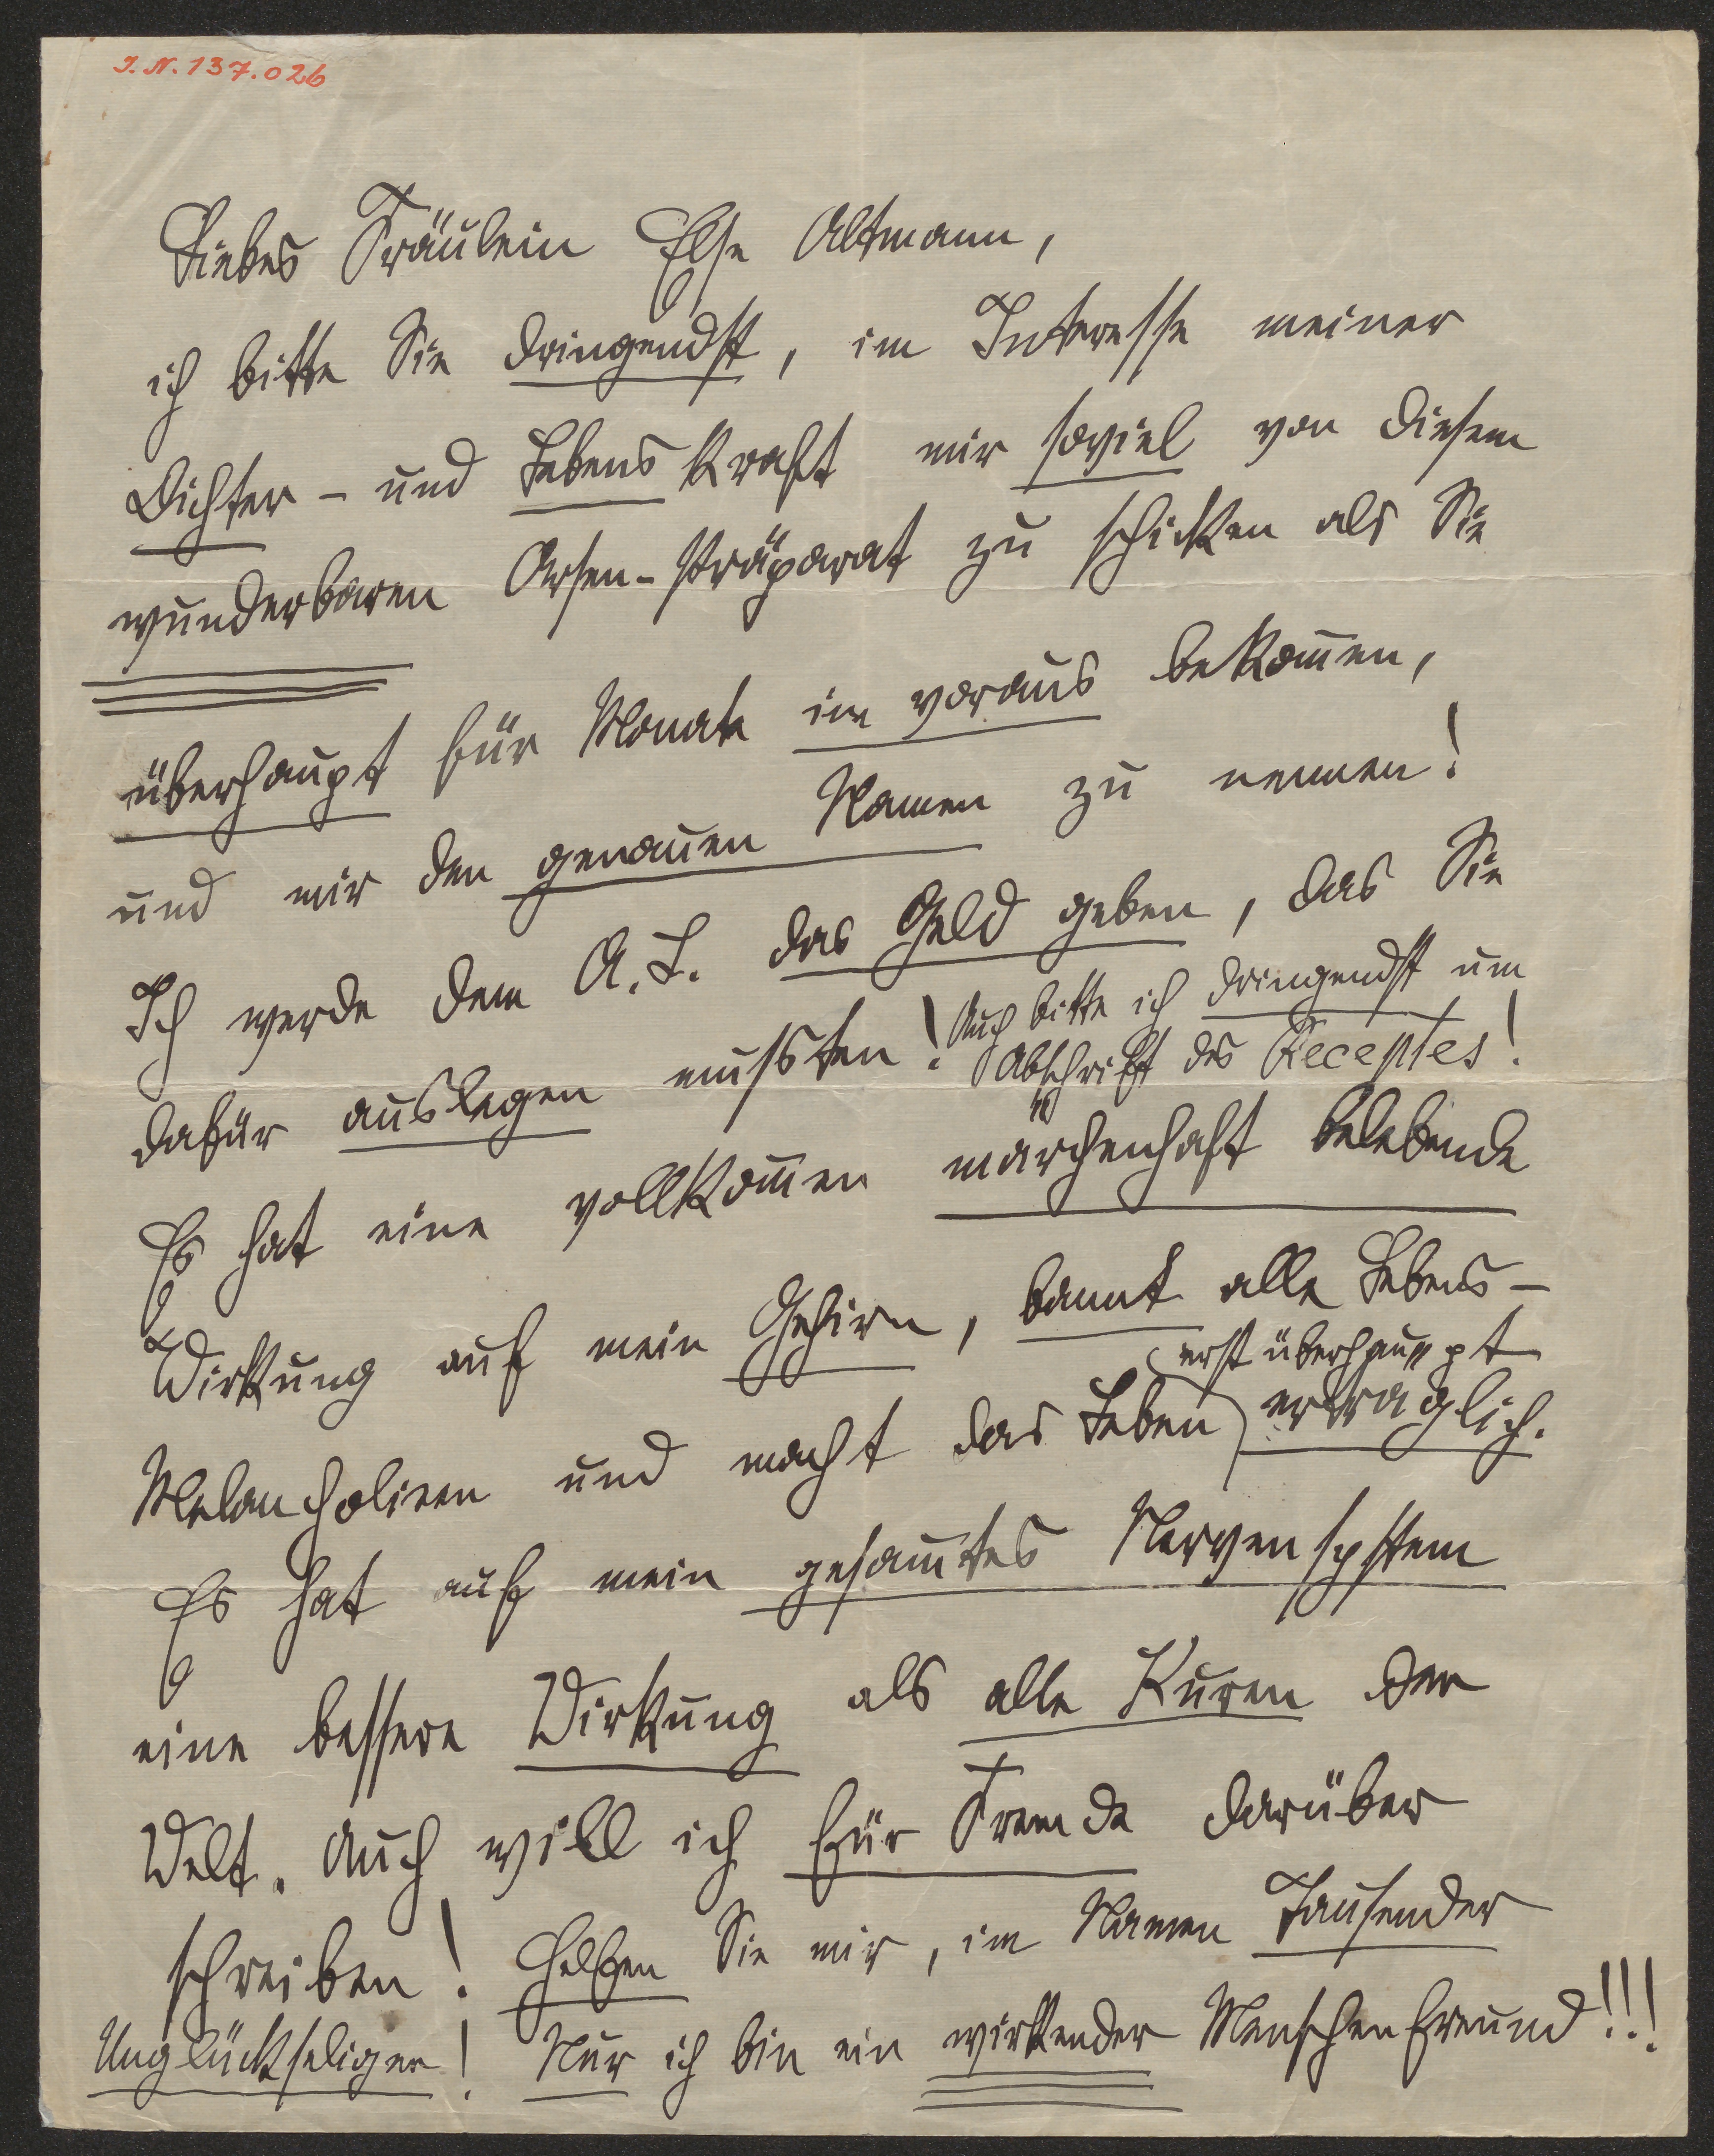 I. N. 137.026
Liebes Fräulein Else Altmann,
ich bitte Sie dringendst, im Interesse meiner
Dichter- und Lebenskraft mir soviel von diesem
wunderbaren Arsen-Präparat zu schicken als Sie
überhaupt für Monate im voraus bekom̄en,
und mir den genauen Namen zu nennen!
Ich werde dem A. L. das Geld geben, das Sie
dafür auslegen mussten! Auch bitte ich dringendst um
Abschrift des Receptes!
Es hat eine vollkom̄en märchenhaft belebende
Wirkung auf mein Gehirn, bannt alle Lebens-
Melancholieen und macht das Leben erst überhaupt
erträglich.
Es hat auf mein gesam̄tes Nervensystem
eine bessere Wirkung als alle Kuren der
Welt. Auch will ich für Fremde darüber
schreiben! Helfen Sie mir, im Namen Tausender
Unglückseliger! Nur ich bin ein wirkender Menschenfreund!!!